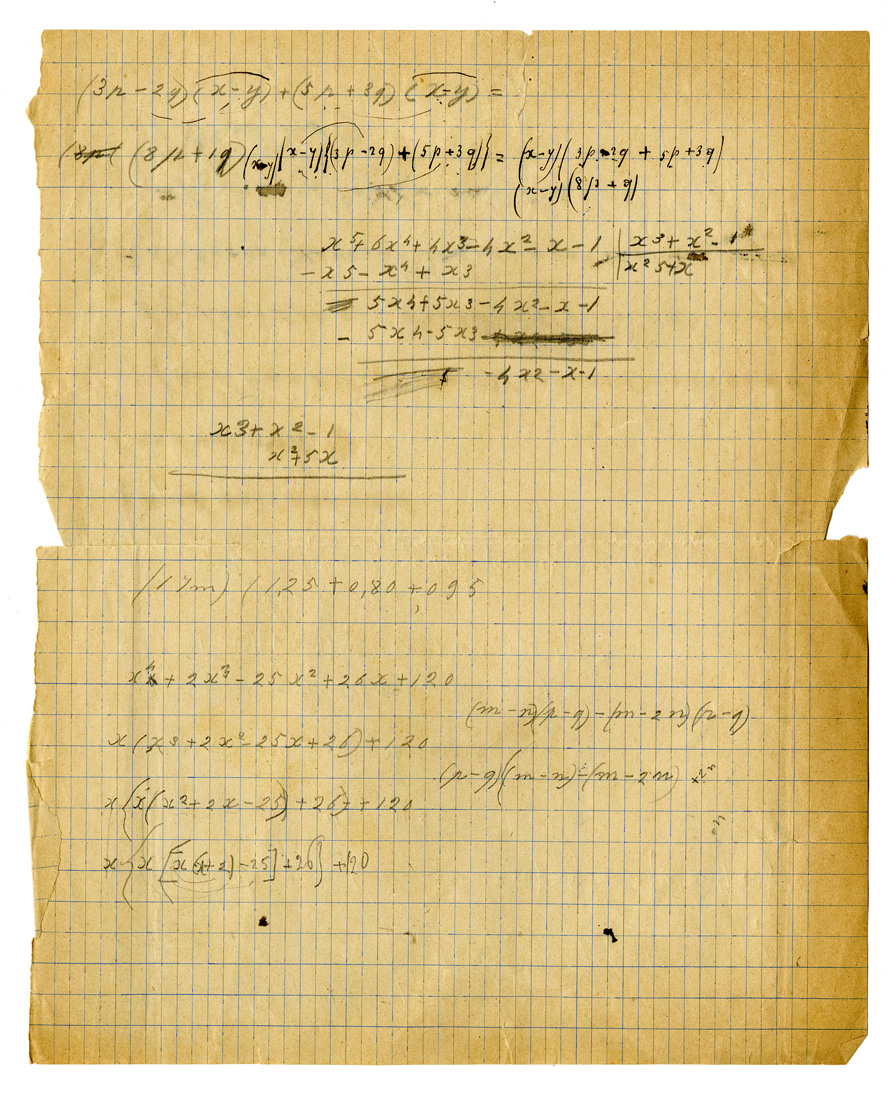 (3p - 2q)(x-y) + (5p + 3q)(x-y) =
(8p + 1q) (x-y){(3p-2q)+(5p+3q)} = (x-y)(3p-2q + 5p+3q)
(x-y)(8p+q)
x5 + 6x4 + 4x3 - 4x2 - x - 1 | x3 + x2 - 1
- x5 - x4 + x3 x2 5+x
5x4 + 5x3 - 4x2 - x - 1
- 5x4 - 5x3
- 4x2 - x - 1
x3 + x2 - 1
x2+5x
(17m) (1,25 + 0,80 + 0,95
x4 + 2x3 - 25x2 + 26x + 120
(p-q)(m-2n)-(q-p)(n-m)
x(x3 + 2x2 - 25x + 26) + 120
x{x(x2 + 2x - 25) + 26} + 120
x{x[x(x+2)-25]+26} + 120